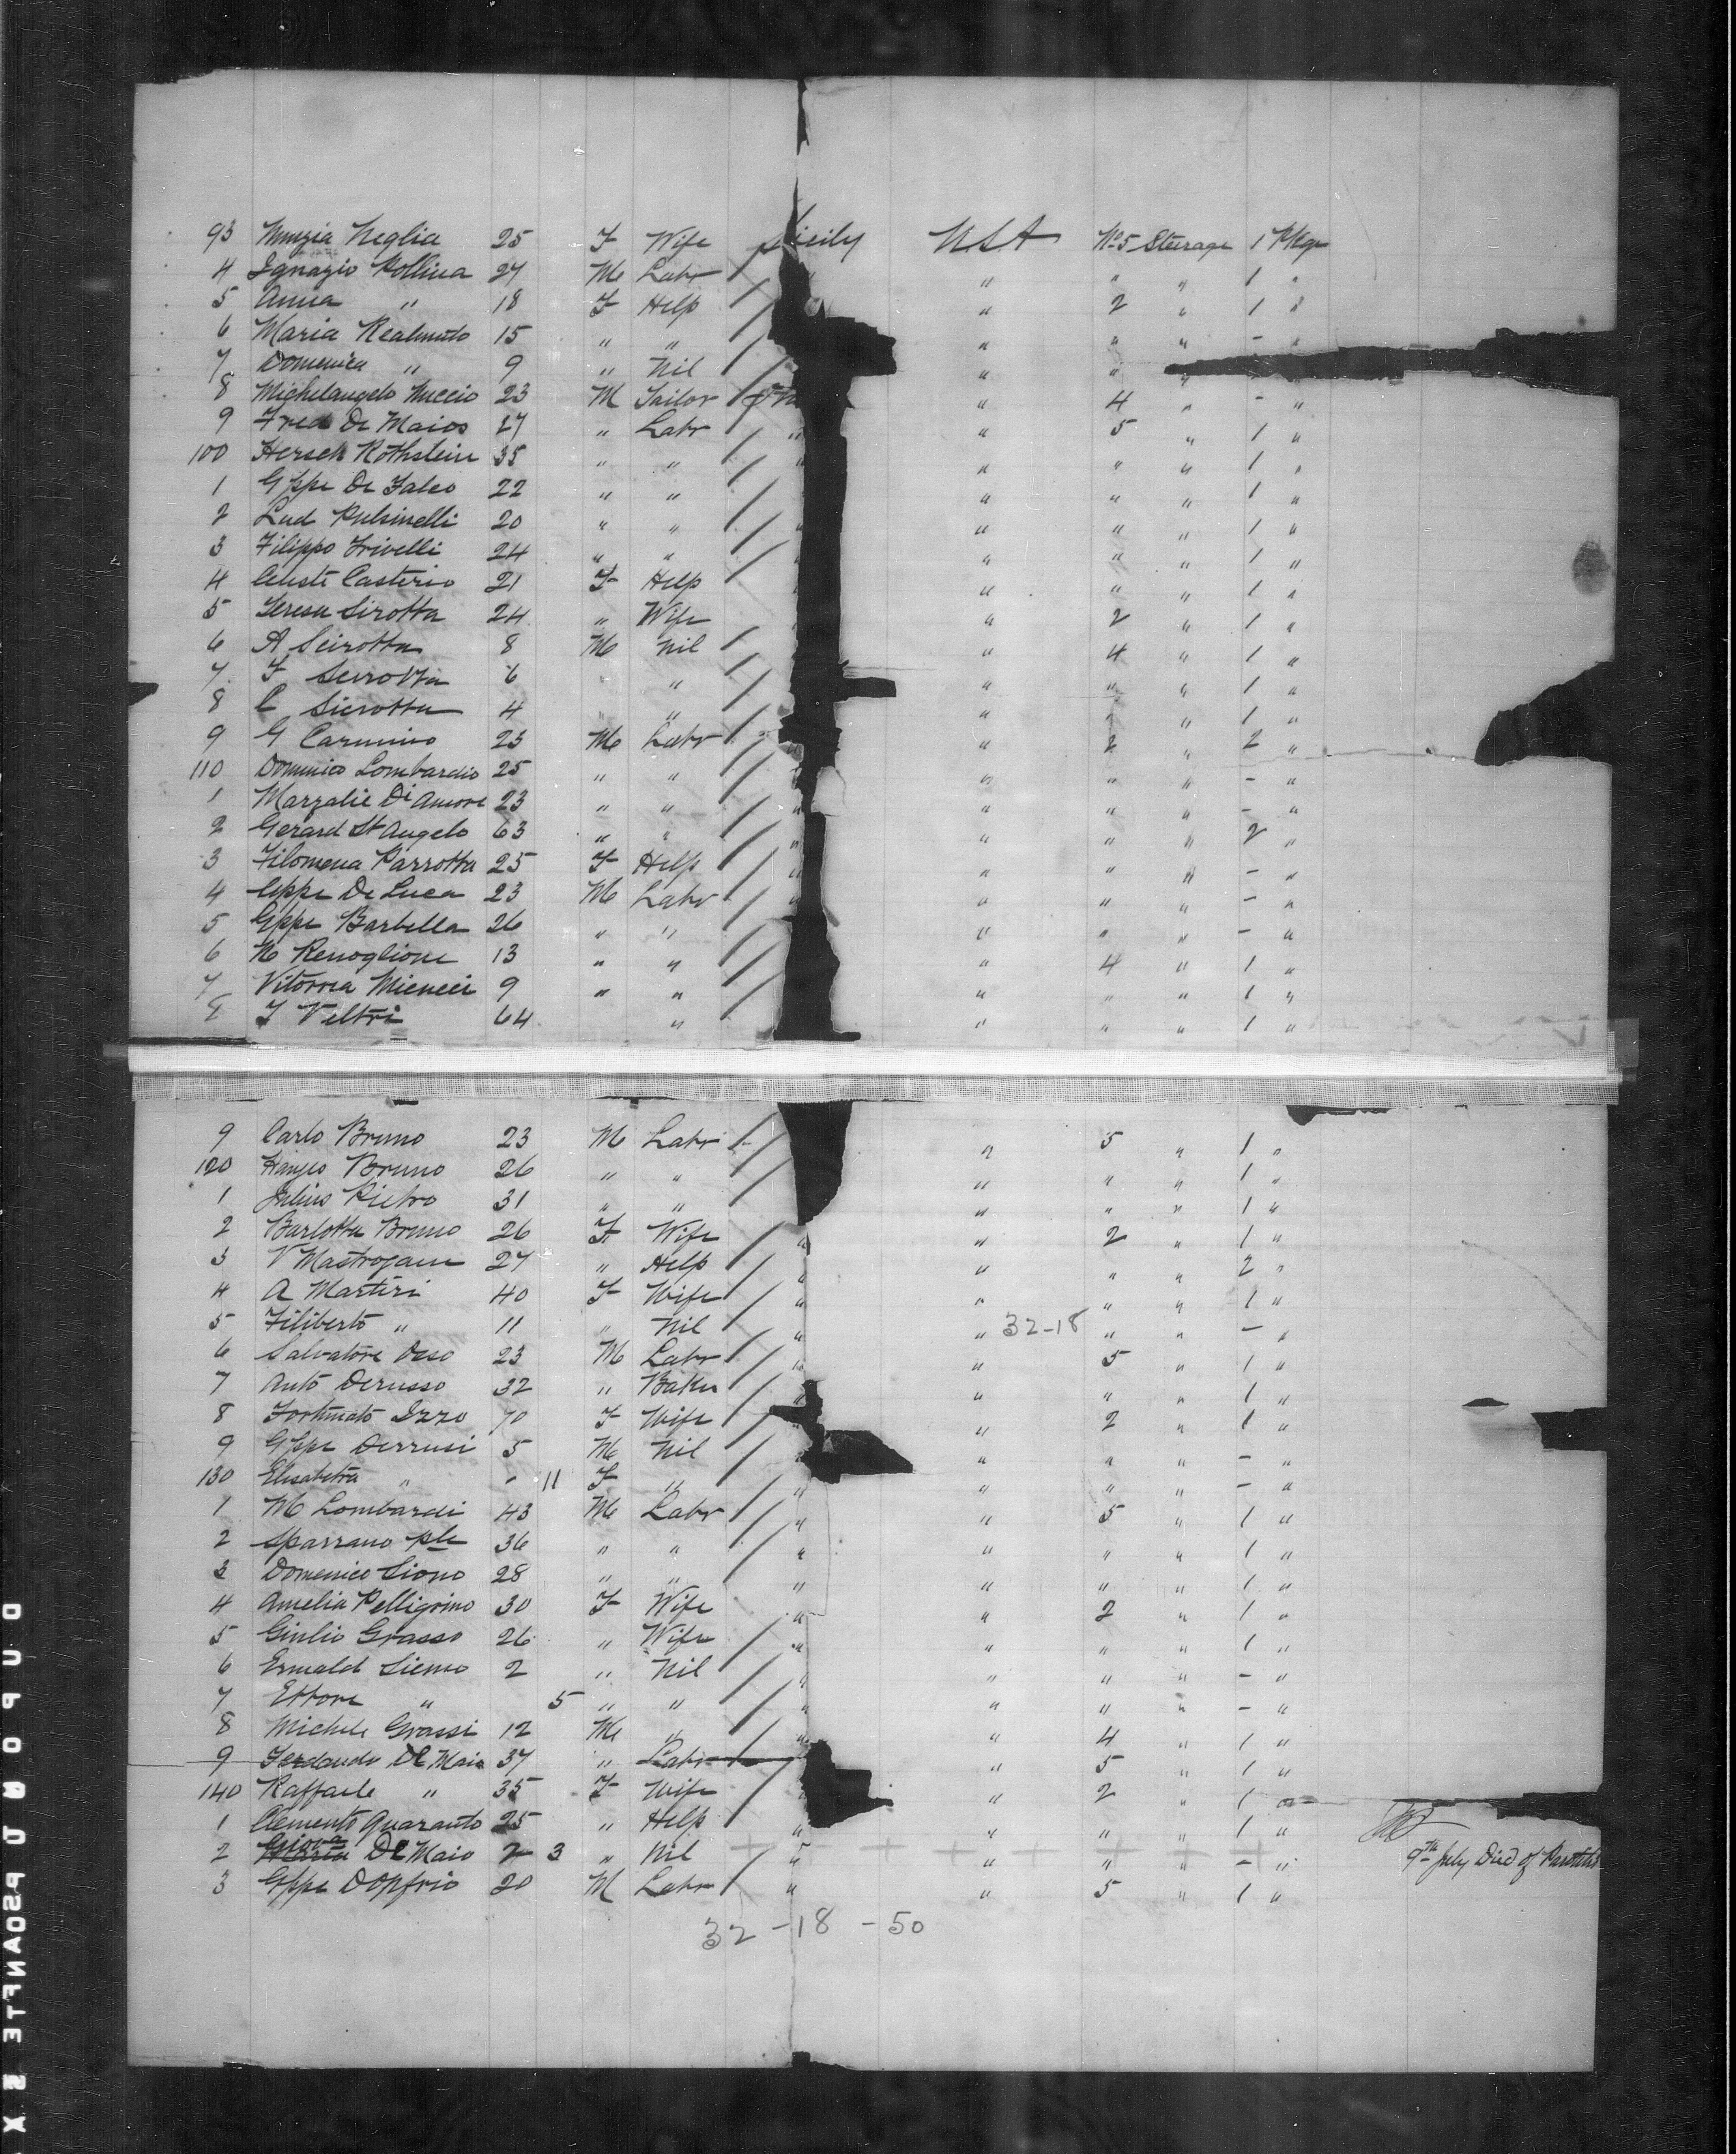 93 Nunzia Neglia 25 F Wife Sicily USA No 5 Steerage 1 Pkge
4 Ignazio Pollina 27 M Labr " " " 1 "
5 Anna " 18 F Help " 2 " 1 "
6 Maria Realmuto 15 " " " " " - "
7 Domenica " 9 " Nil " " "
8 Michelangelo Nuccio 23 M Tailor " 4 " - "
9 Fred De Maios 27 " Labr " " 5 " 1 "
100 Hersch Rothstein 35 " " " " " " 1 "
1 Gppe De Falco 22 " " " " " 1 "
2 Lud Pulsinelli 20 " " " " " " 1 "
3 Filippo Trivelli 24 " " " " " 1 "
4 Celeste Casterio 21 F Help " " " 1 "
5 Teresa Sirotta 24 " Wife " 2 " 1 "
6 A Scirotta 8 M Nil " 4 " 1 "
7 F Serrotta 6 " " " " 1 "
8 C Sierotta 4 " " " " " 1 "
9 G Carmino 23 M Labr " 2 " 2 "
110 Domenico Lombardio 25 " " " " " - "
1 Marzalie Di Amore 23 " " " " " " - "
2 Gerard St Angelo 63 " " " " " " 2 "
3 Filomena Parrotta 25 F Help " " " " - "
4 Gppe De Luca 23 M Labr " " " " - "
5 Gppe Barbella 26 " " " " " - "
6 N Renoglione 13 " " " 4 " 1 "
7 Vitorrea Miencci 9 " " " " " 1 "
8 F Veltri 64 " " " " 1 "
9 Carlo Bruno 23 M Labr " 5 " 1 "
120 Bruno 26 " " " " " 1 "
1 Julius Pietro 31 " " " " " 1 "
2 Barlotta Bruno 26 F Wife " " 2 " 1 "
3 V Mastrogam 27 " Help " " " " 2 "
4 A Marteri 40 F Wife " " " " 1 "
5 Filiberto " 11 " Nil " " 32-18 " " - "
6 Salvatore Osso 23 M Labr " " 5 " 1 "
7 Anto Derusso 32 " Baker " " " " 1 "
8 Fortunato Izzo 70 F Wife " 2 " 1 "
9 Gppe Derrusi 5 M Nil " " " " - "
130 Elisabetta " - 11 F " " " " " - "
1 M Lombardi 43 M Labr " " 5 " 1 "
2 Sparrano ple 36 " " " " " " 1 "
3 Domenico Siono 28 " " " " " " 1 "
4 Amelia Pelligrino 30 F Wife " " 2 " 1 "
5 Giulio Grasso 26 " Wife " " " " 1 "
6 Ermald Siemo 2 " Nil " " " " - "
7 Ettore " 5 " " " " " " - "
8 Michele Grassi 12 M " " " 4 " 1 "
9 Ferdando De Maio 37 " Labr " 5 " 1 "
140 Raffaele " 35 F Wife " " 2 " 1 "
1 Clemento Quaranto 25 " Help " " " " 1 "
2 De Maio 2 3 " Nil " " " " - " 9th July Died of Parotitis
3 Gppe Dopfrio 20 M Labr " " 5 " 1 "
32 - 18 - 50